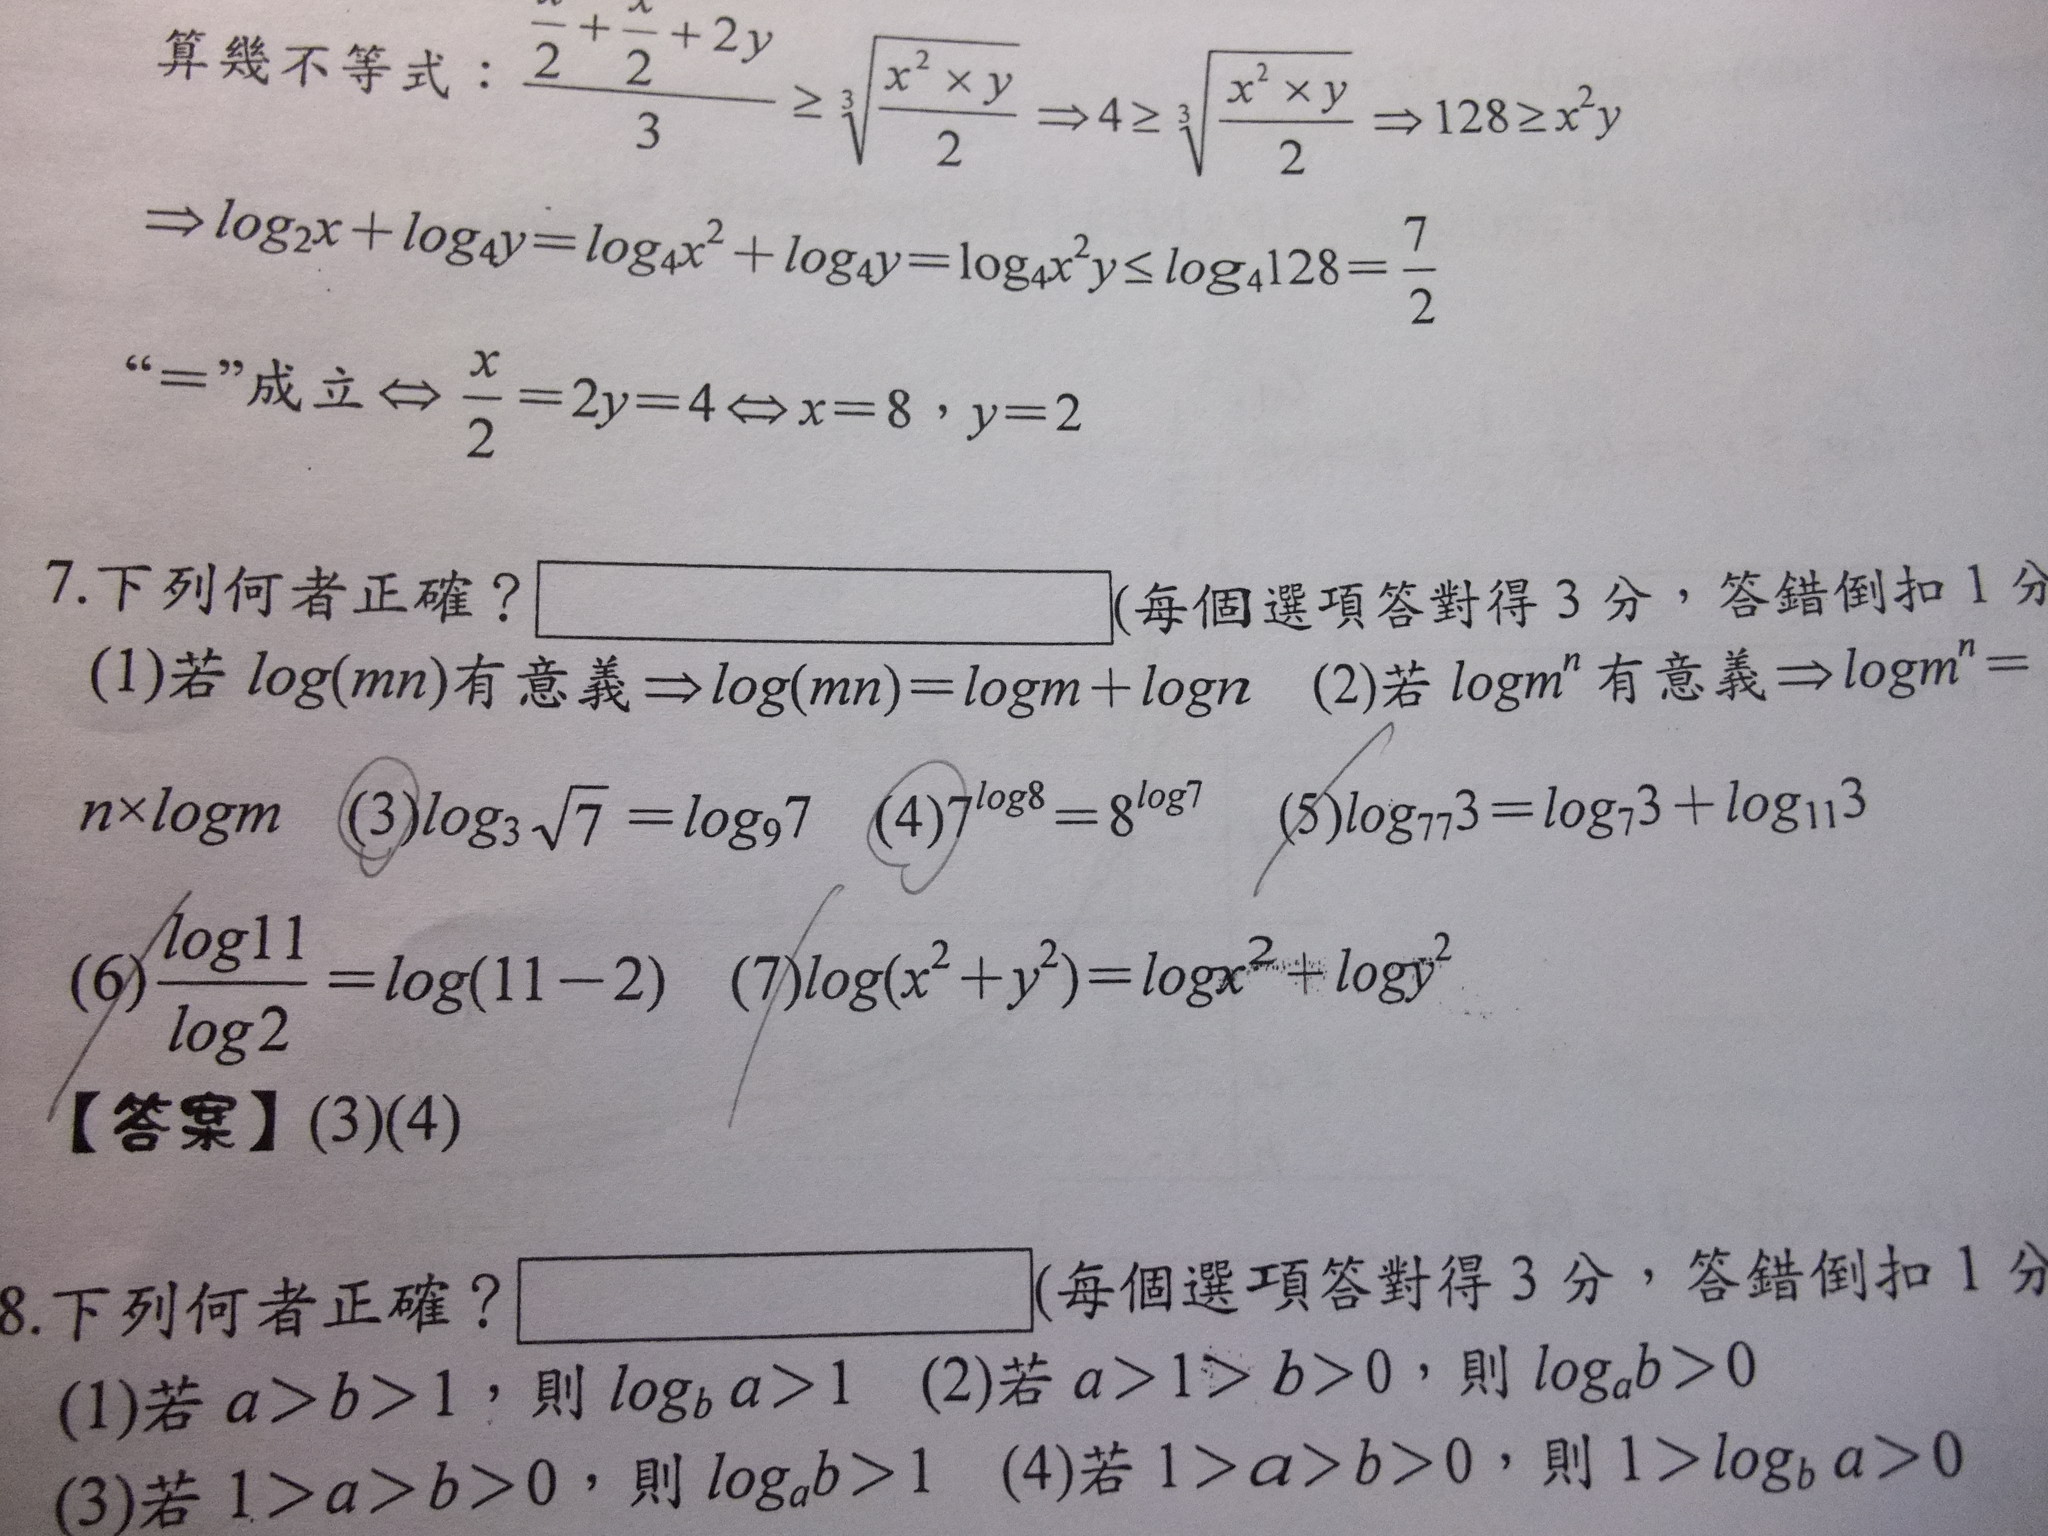 算幾不等式：\frac{\frac{x}{2}+\frac{x}{2}+2y}{3} ≥ \sqrt[3]{\frac{x^2×y}{2}} ⇒ 4 ≥ \sqrt[3]{\frac{x^2×y}{2}} ⇒ 128 ≥ x²y
⇒ log₂x＋log₄y＝log₄x²＋log₄y＝log₄x²y ≤ log₄128＝\frac{7}{2}
“＝”成立 ⇔ \frac{x}{2}＝2y＝4 ⇔ x＝8，y＝2
7.下列何者正確？(每個選項答對得 3 分，答錯倒扣 1 分
(1)若 log(mn)有意義⇒log(mn)＝logm＋logn (2)若 logmⁿ 有意義⇒logmⁿ＝
n×logm (3)log₃√7＝log₉7 (4)7^{log8}＝8^{log7} (5)log₇₇3＝log₇3＋log₁₁3
(6)\frac{log11}{log2}＝log(11－2) (7)log(x²＋y²)＝logx²＋logy²
【答案】(3)(4)
8.下列何者正確？(每個選項答對得 3 分，答錯倒扣 1 分
(1)若 a＞b＞1，則 log_b a＞1 (2)若 a＞1＞b＞0，則 log_a b＞0
(3)若 1＞a＞b＞0，則 log_a b＞1 (4)若 1＞a＞b＞0，則 1＞log_b a＞0